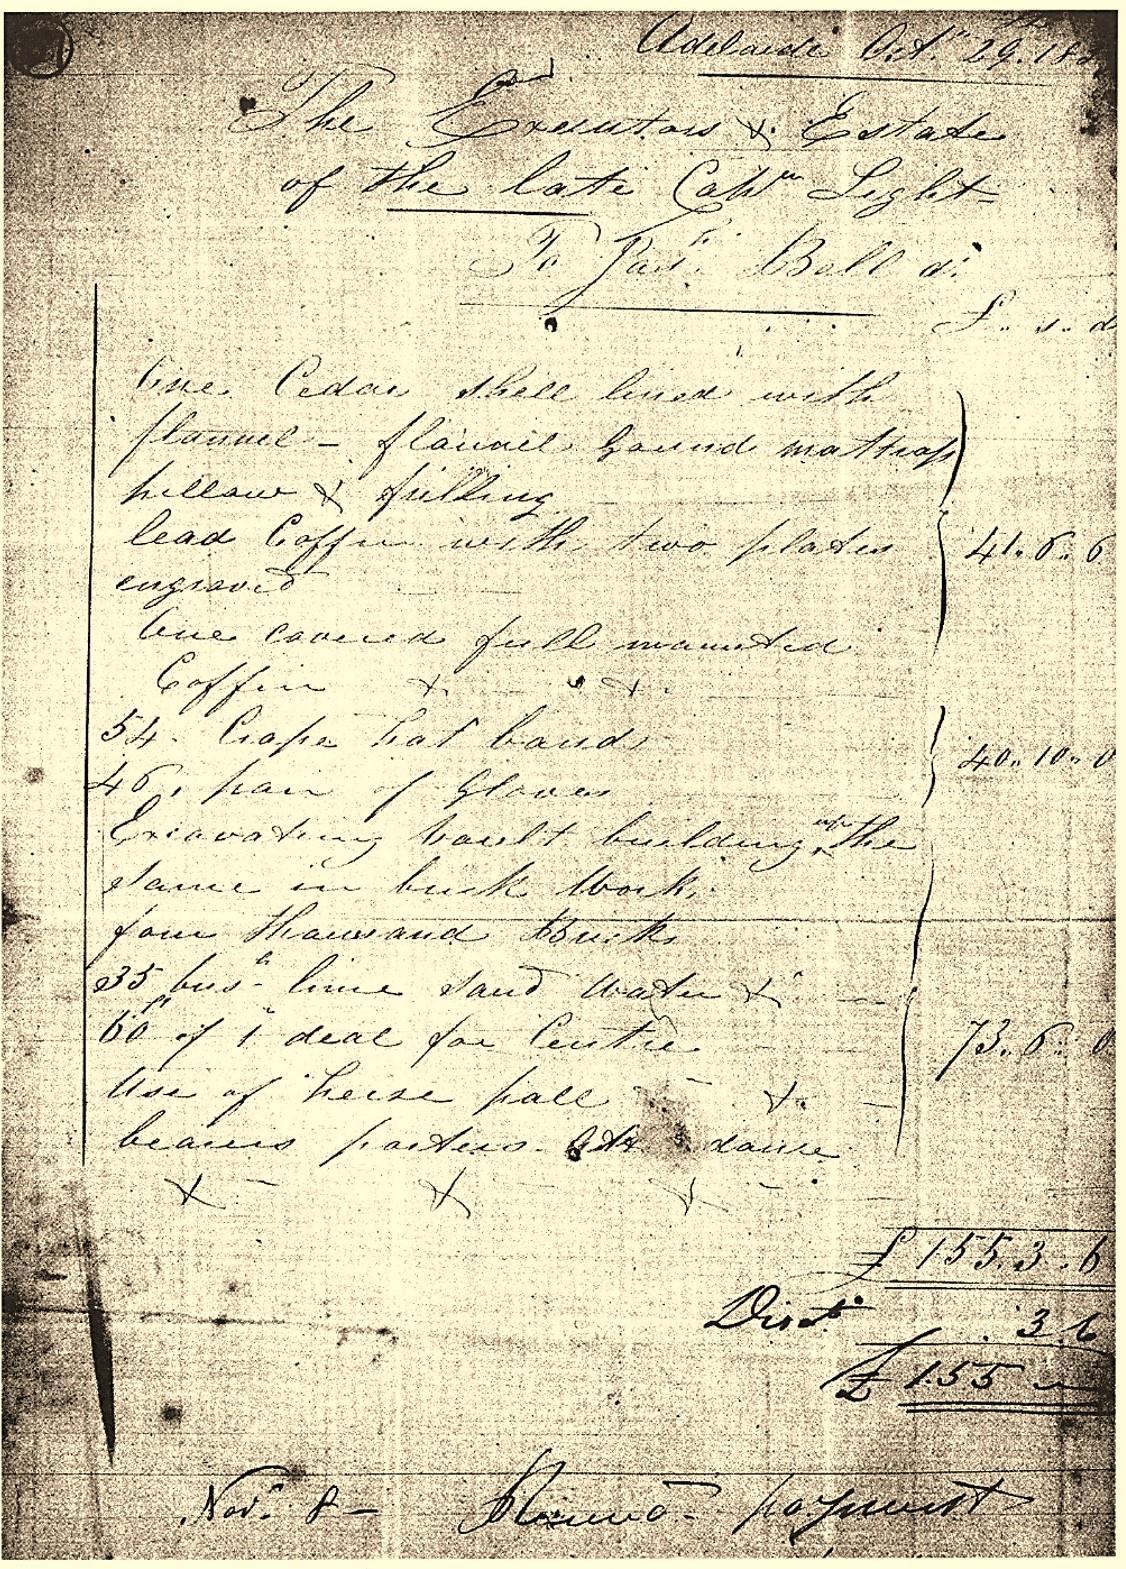 Adelaide Oct.r 29. 18
The Executors & Estate
of the late Captn Light
To Jas. Ball dr.
£ .. s .. d
One Cedar shell lined with
flannel - flannel gound mattrass
pillow & frilling
lead Coffin with two plates
engraved
One covered full mounted
Coffin
54. Crape hat bands
46, pair of Gloves
Excavating vault building up the
same in brick Work.
four thousand Bricks
35 bush lime sand Water &
60 ft of 1" deal for Centre
Use of herse pall
bearers porters Attendance
41.. 6.. 6
40.. 10.. 0
73.. 6.. 0
£ 155. 3. 6
Disct. 3. 6
£ 155 "
Novr. 8 - payment